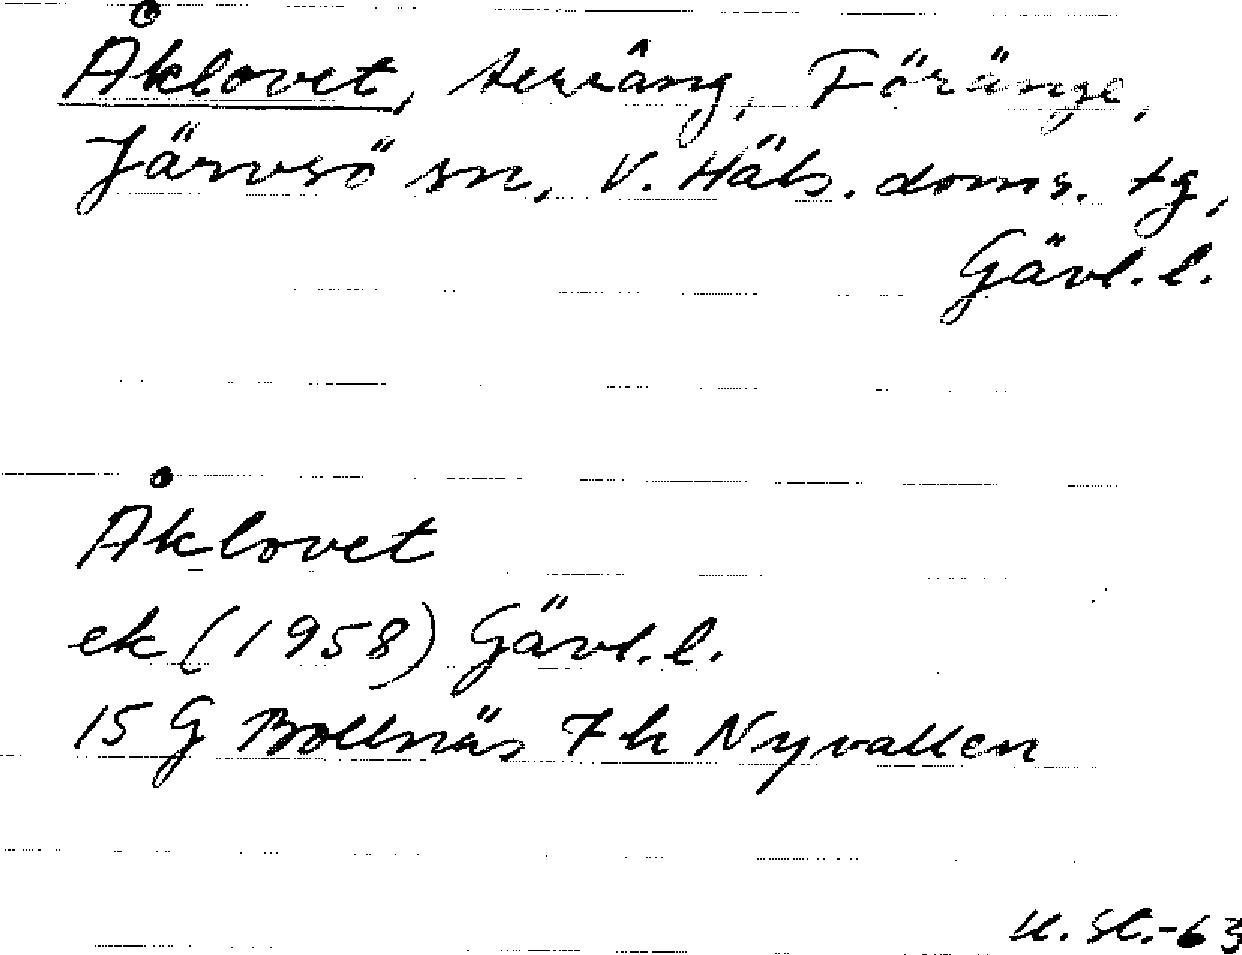 Åklovet, terräng, Föränge,
Järvsö sn, V. Häls. doms. tg,
Gävl. l.
Åklovet
ek (1958) Gävl. l.
15 G Bollnäs 7 h Nyvallen
U. Sl. -63